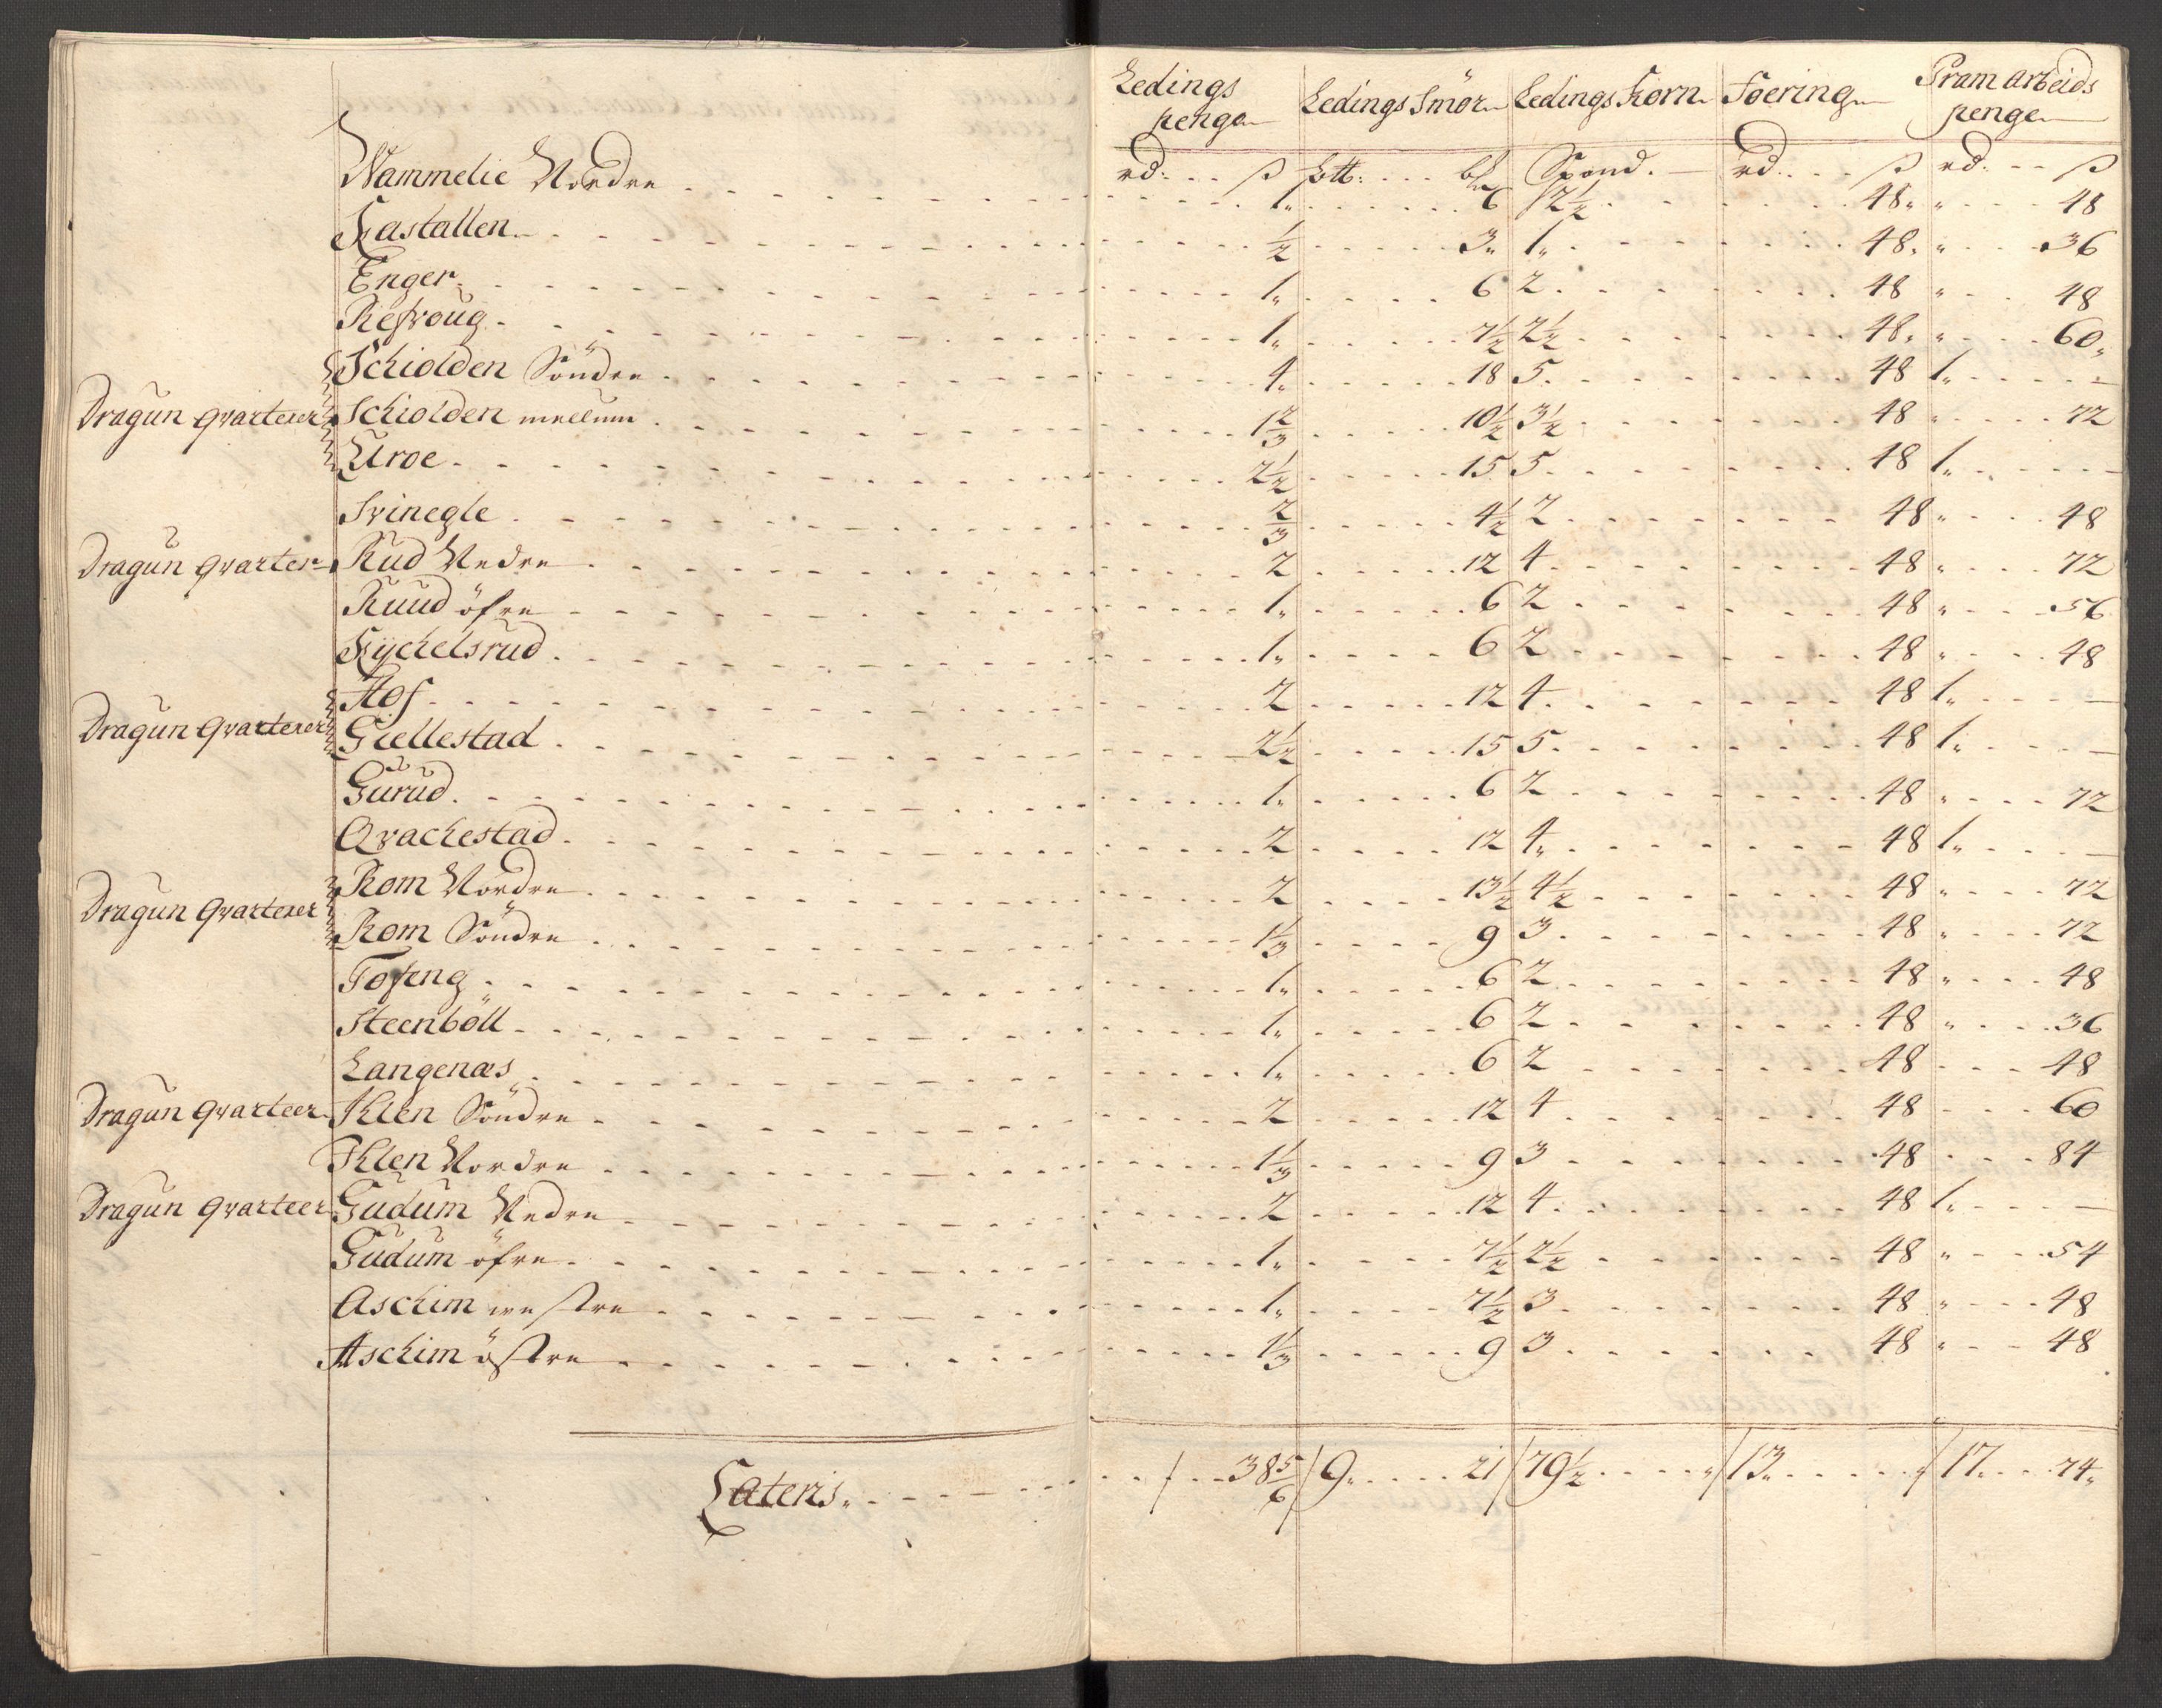 Ledings penge Ledings Smör Ledings Korn Foering Pram arbeids penge
rd: ß ℔: bl Spond. rd. ß rd. ß
Wammelie Nordre 1 6 2½ 48 " 48
Kastallen ½ 3 1 48 " 36
Enger 1 6 2 48 " 48
Refvoug 1 7½ 2½ 48 " 60
Schiolden Söndre 4 18 5 48 1 -
Dragun qvarterer Schiolden mellum 1⅔ 10½ 3½ 48 " 72
Uroe 2½ 15 5 48 1 -
Svinegle ⅔ 4½ 2 48 " 48
Dragun qvarter Rud Nedre 2 12 4 48 " 72
Ruud öfre 1 6 2 48 " 56
Kychelsrud 1 6 2 48 " 48
Hof 2 12 4 48 1 -
Dragun Qvarterer Giellestad 2½ 15 5 48 1 -
Gurud 1 6 2 48 " 72
Qvachestad 2 12 4 48 1 -
Rom Nordre 2 13½ 4½ 48 " 72
Dragun Qvarterer Rom Söndre 1⅓ 9 3 48 " 72
Tofeng 1 6 2 48 " 48
Steenböll 1 6 2 48 " 36
Langenæs 1 6 2 48 48
Dragun qvarteer Klen Söndre 2 12 4 48 60
Klen Nordre 1⅓ 9 3 48 84
Dragun qvarteer Gudum Nedre 2 12 4 48 1 -
Gudum öfre 1 7½ 2½ 48 " 54
Aschim westre 1 7½ 3 48 " 48
Aschim östre 1⅓ 9 3 48 " 48
Lateris 38⅚ 9 21 79½ 13 " 17 74